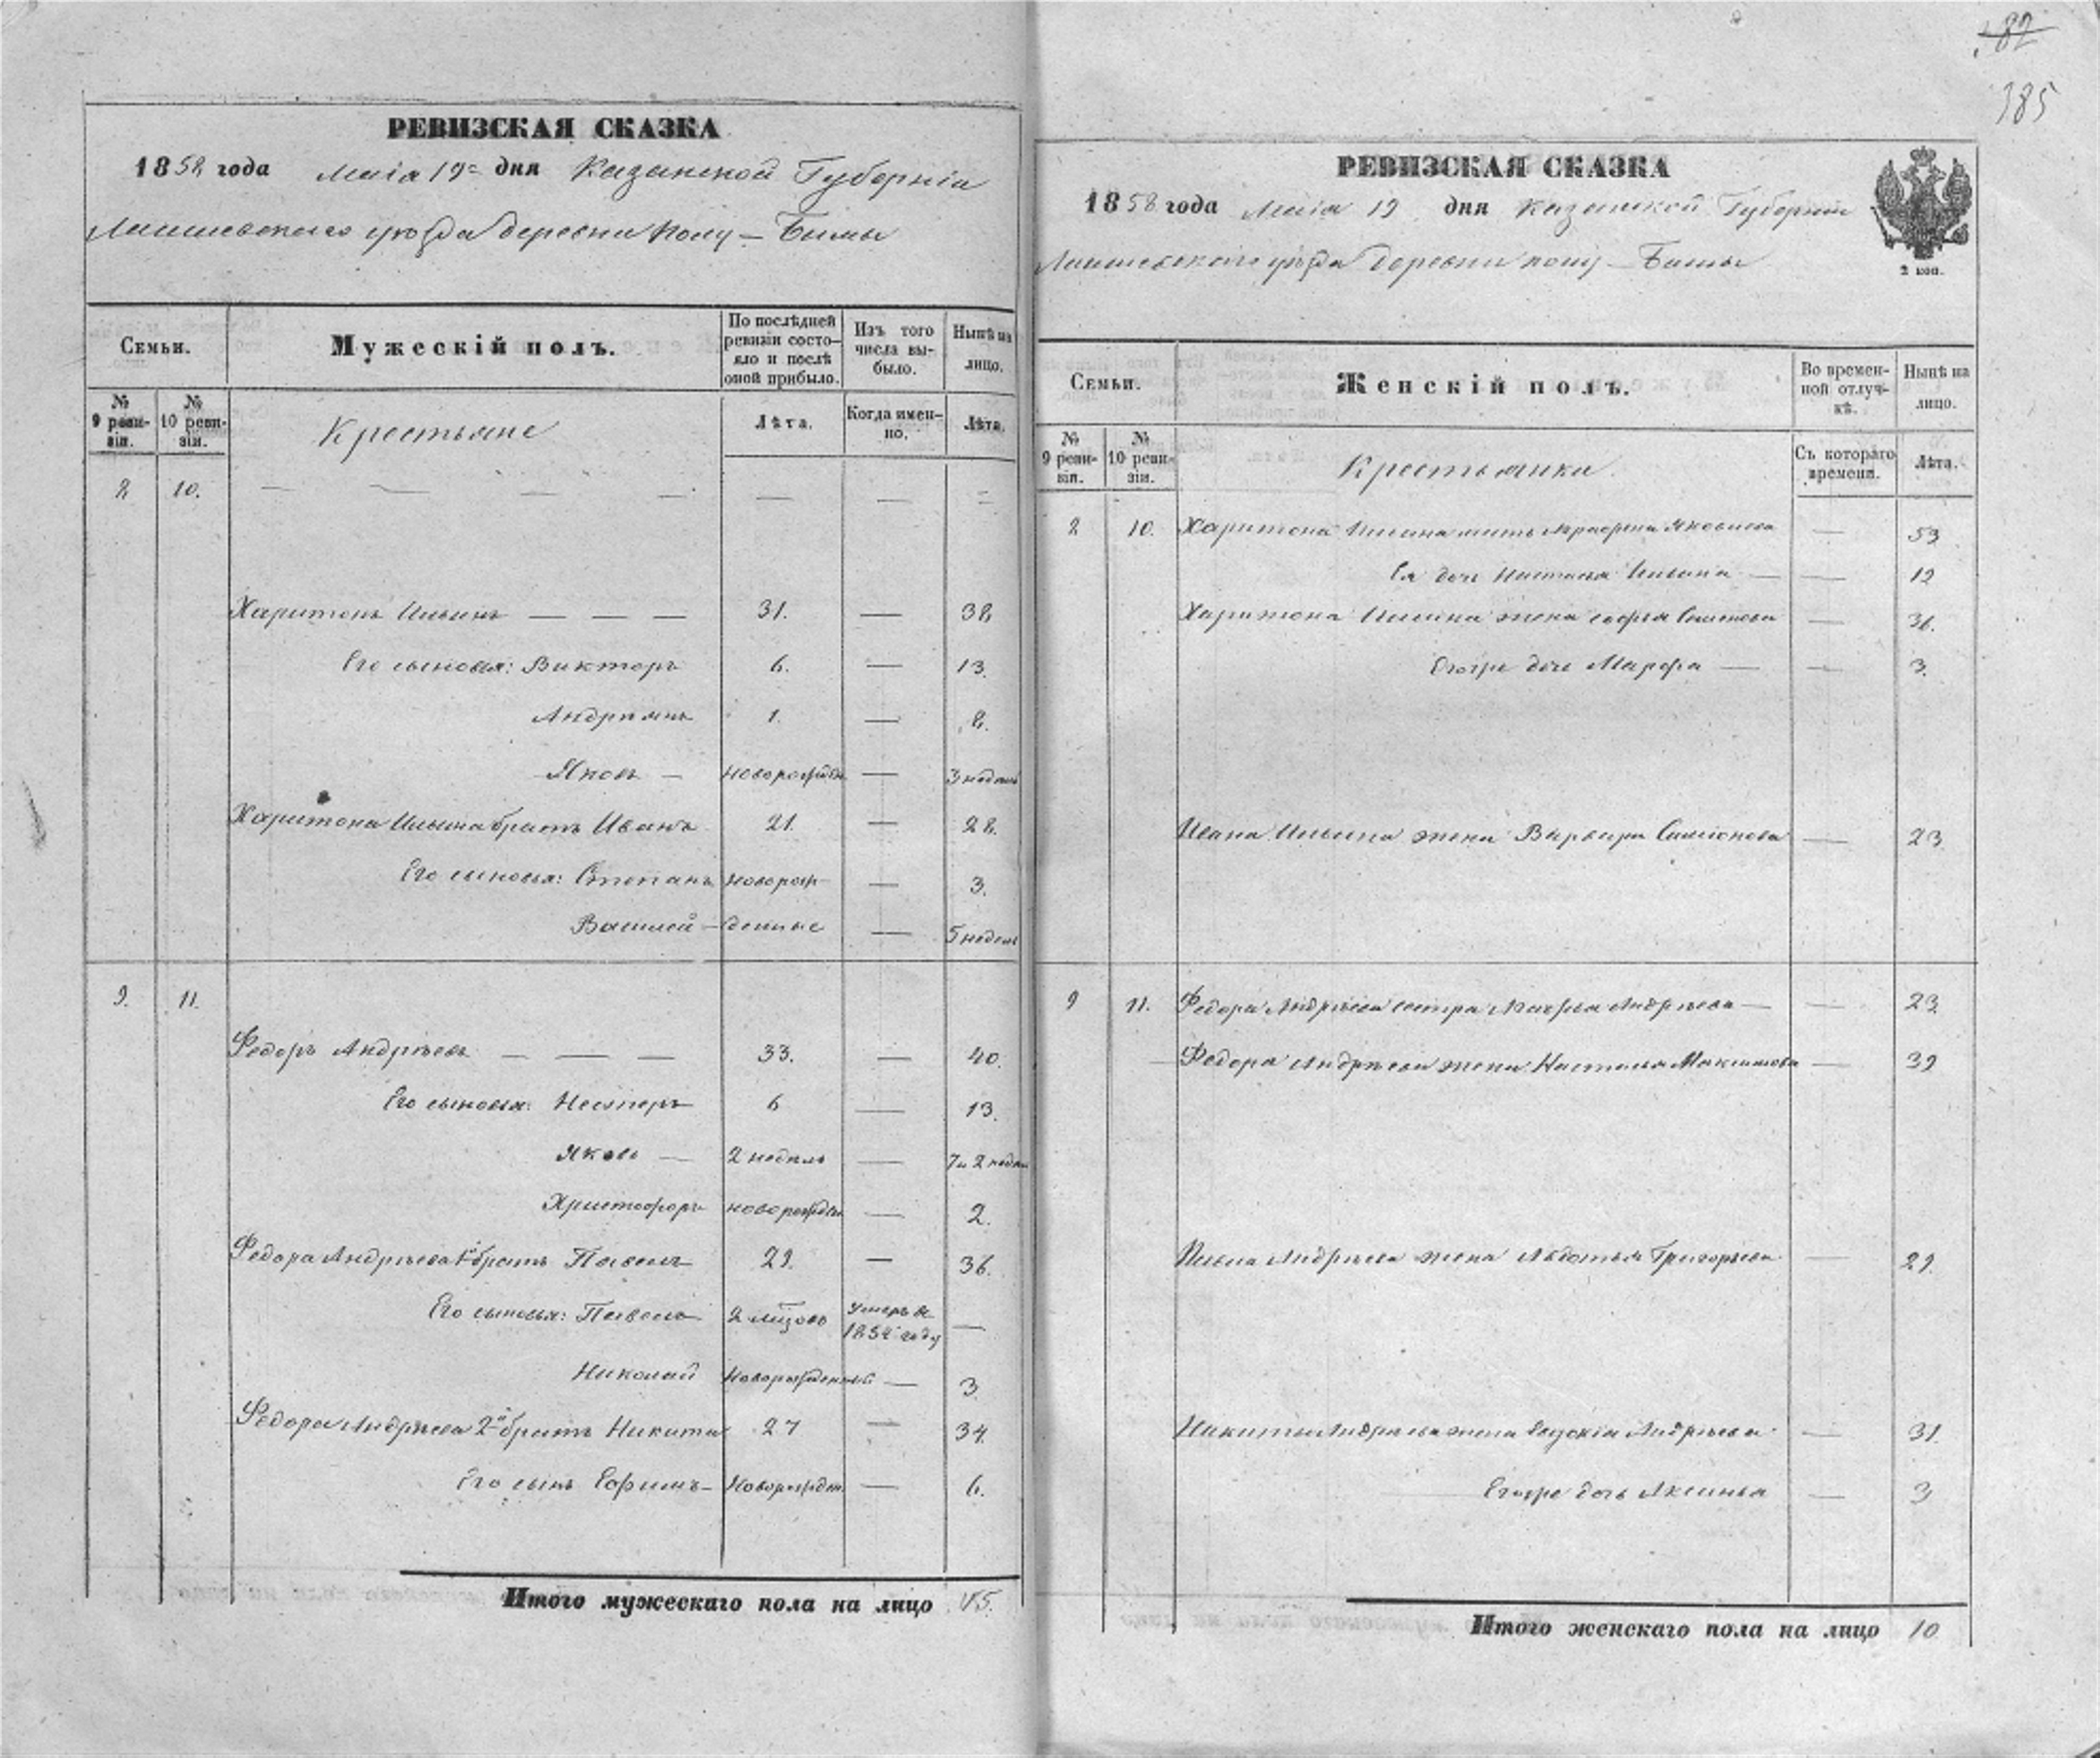 82
185
РЕВИЗСКАЯ СКАЗКА
1858 года Маія 19 дня Казанской Губерніи
Лаишевскаго уѣзда деревни Кощ - Бимы
Семьи.
Мужескій полъ.
По послѣдней ревизіи состояло и послѣ оной прибыло.
Изъ того числа выбыло.
Нынѣ на лицо.
№ 9 ревизіи.
№ 10 ревизіи.
Крестьяне
Лѣта.
Когда именно.
Лѣта.
8 10. — — — — — — —
Харитонъ Ильинъ — — — 31. — 38
Его сыновья: Викторъ 6. — 13.
Андріянъ 1. — 8.
Яковъ — новорожден — 3 недель
Харитона Ильина братъ Иванъ 21. — 28.
Его сыновья: Степанъ Неворож — 3.
Василей — денные — 5 недель
9. 11.
Федоръ Андрѣевъ — — — 33. — 40.
Его сыновья: Несторъ 6 — 13.
Яковъ — 2 недель — 7 и 2 недел
Христофоръ новорожден — 2.
Федора Андрѣева 1й братъ Павелъ 29. — 36.
Его сыновья: Павелъ 2 мѣсяцовъ Умеръ въ 1854 году —
Николай Новорожденный — 3.
Федора Андрѣева 2й братъ Никита 27 — 34.
Его сынъ Ефимъ — Новорожден — 6.
Итого мужескаго пола на лицо 15.
РЕВИЗСКАЯ СКАЗКА
1858 года Маія 19 дня Казанской Губерніи
Лаишевскаго уѣзда деревни Кощ - Бимы
2 коп.
Семьи.
Женскій полъ.
Во временной отлучкѣ.
Нынѣ на лицо.
№ 9 ревизіи.
№ 10 ревизіи.
Крестьянки
Съ котораго времени.
Лѣта.
8 10. Харитона Ильина мать Яковлева — 53
Ея дочь Настасья Ильина — — 12
Харитона Ильина жена Софья Семенова — 36.
Егоже дочь Марфа — — 3.
Ивана Ильина жена Варвара Симіонова — 23
9 11. Федора Андрѣева сестра Марфа Андрѣева — — 23
Федора Андрѣева жена Настасья Максимова — 39
Павла Андрѣева жена Авдотья Григорьева — 29.
Никиты Андрѣева жена Евдокія Андрѣева — 31.
Егоже дочь Аксинья — 3
Итого женскаго пола на лицо 10